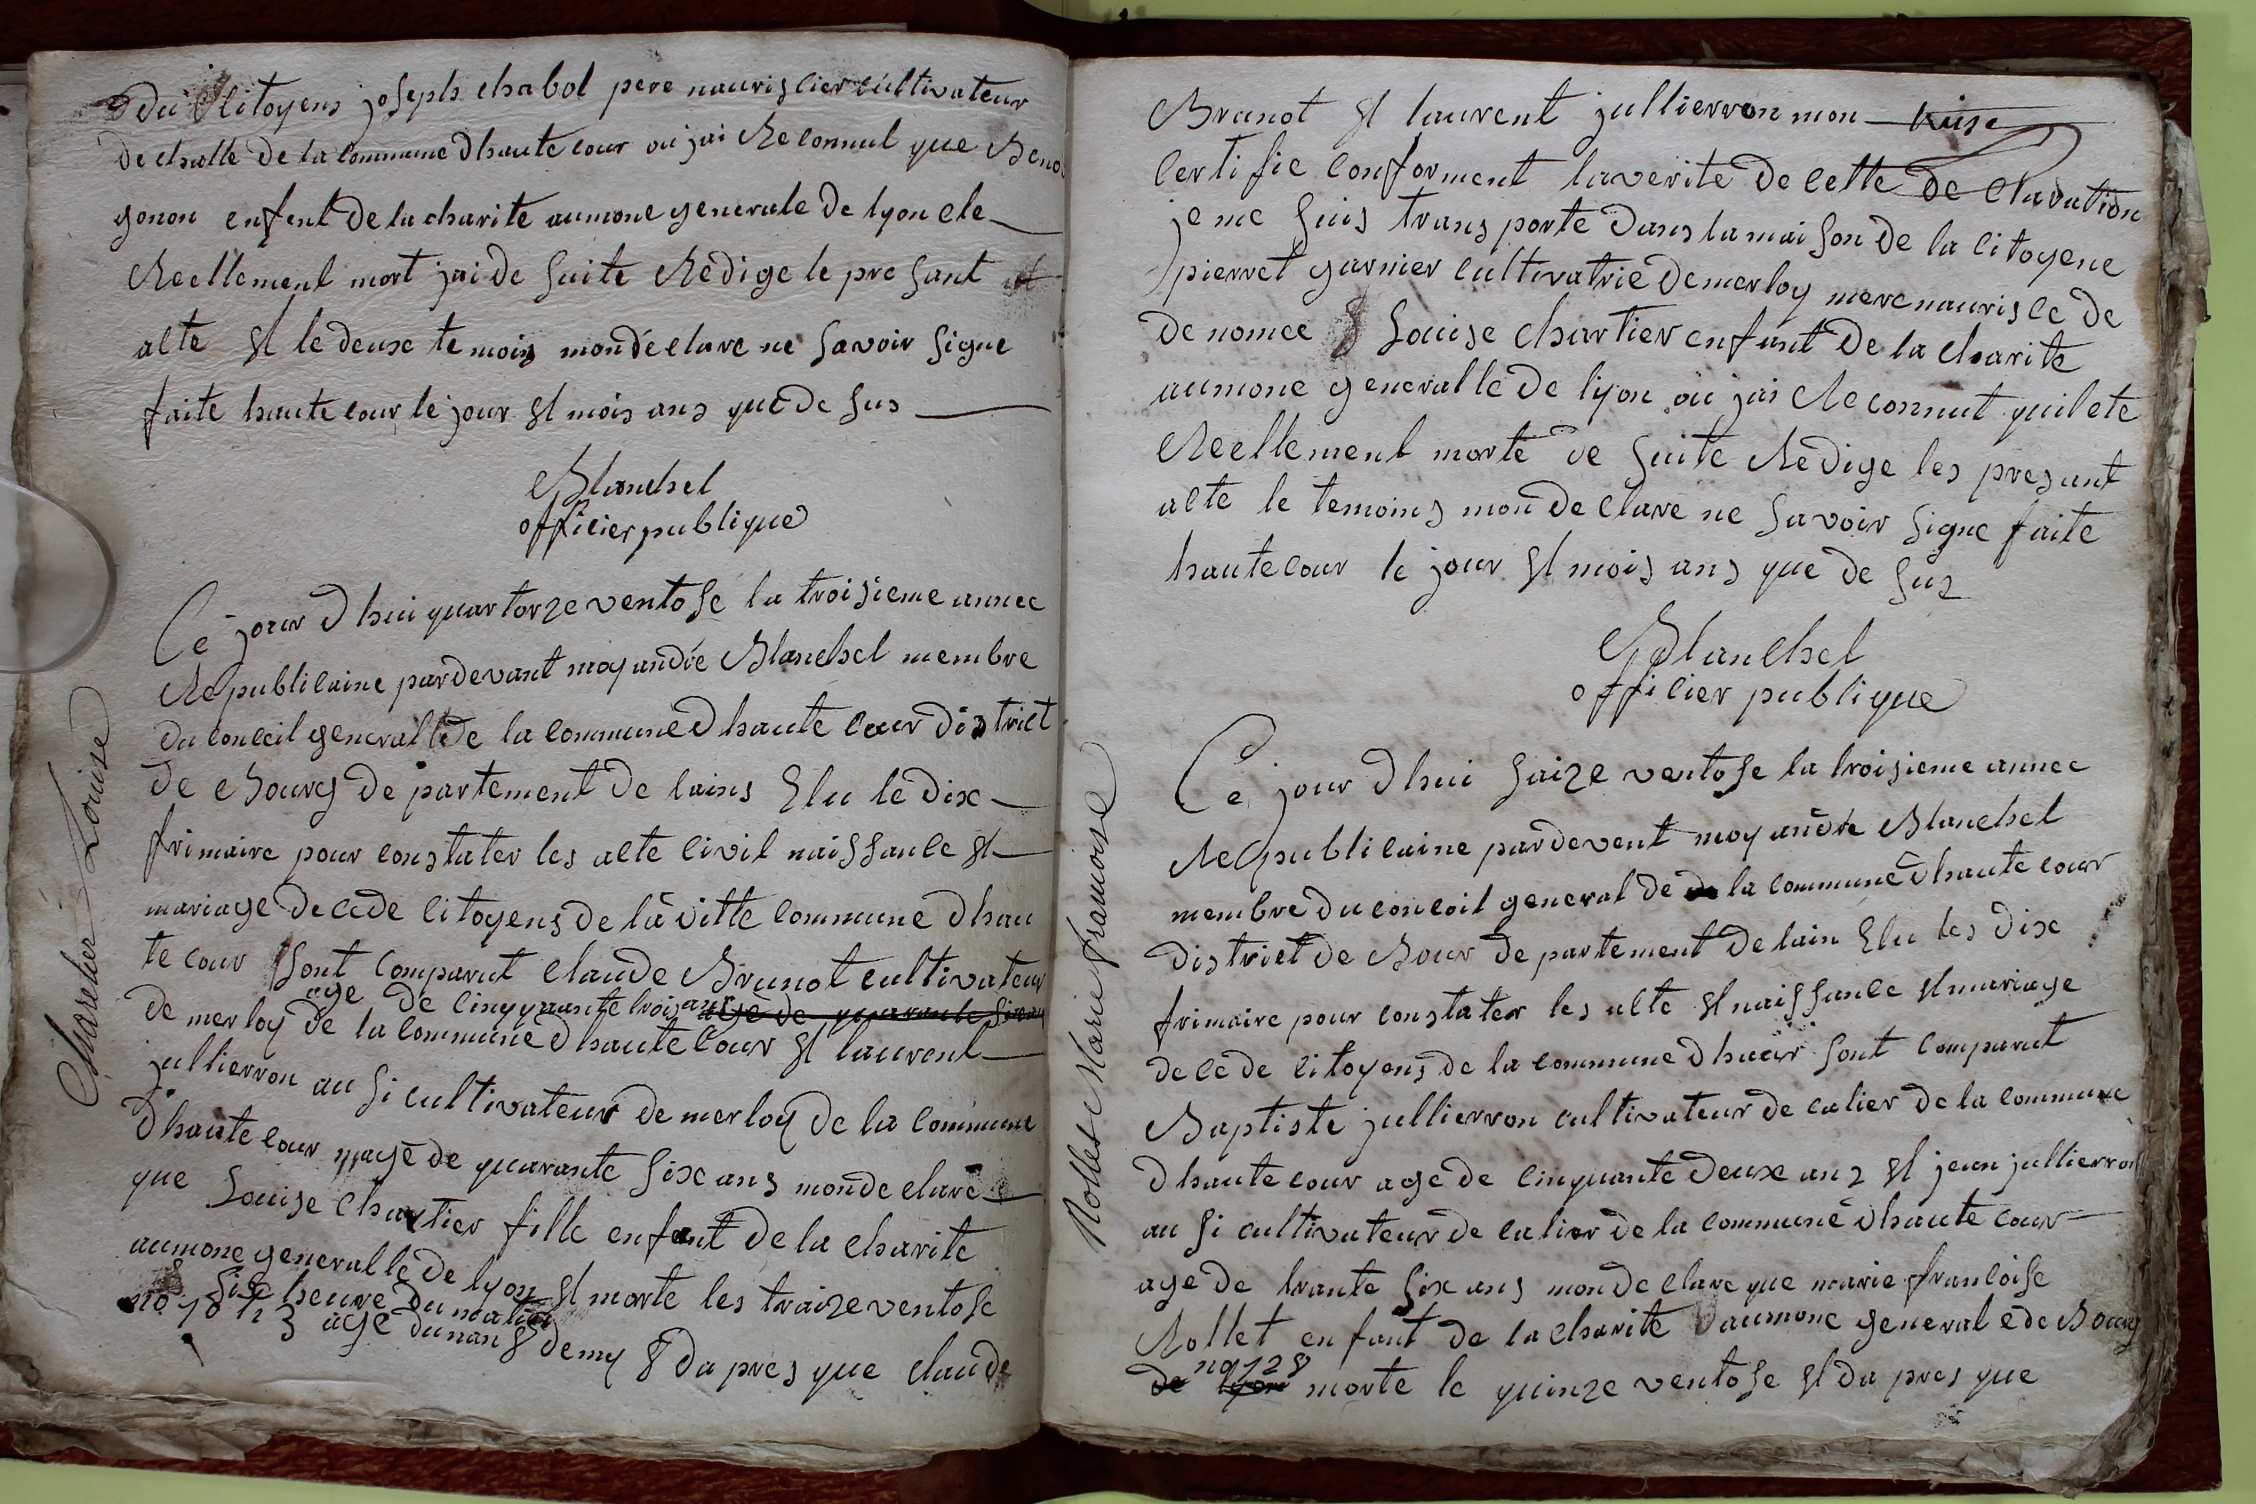 du Citoyens joseph chabol pere nouriscier cultivateur
de challe de la commune dhaute cour ou jai Reconnut que Beno
gonon enfent de la charite aumone generale de lyon ete
Reellement mort jai de suite Redige le presant
acte et le deuxe temoins mon declare ne savoir signe
faite haute cour le jour et mois ans que de sus
Blanchet
officier publique
Charetier Louise
Ce jour dhui quartorze ventose la troisieme annee
Republicaine pardevant moy andre Blanchet membre
du conceil generalle de la commune dhaute cour district
de Bourg departement de lains Elu le dix
frimaire pour constater les acte civil naissance et
mariage decede citoyens de la ditte commune dhau
te cour sont comparut claude Brunot cultivateur
age de cinquante trois ans age de quarante six ans
de merloy de la commune dhaute cour et laurent
jullierron ausi cultivateur de merloy de la commune
dhaute cour age de quarante six ans mon declare
que Louise Chartier fille enfant de la charite
aumone generalle de lyon et morte les traize ventose
six heure du matin
no 78 age dunan demy da pres que claude
Brunot et laurent jullierron mon
certifie conforment la verite de cette de claration
je me suis transporte dans la maison de la citoyene
pierret garnier cultivatrie de merloy mere nourisce de
de nomee Louise Chartier enfant de la charite
aumone generalle de lyon ou jai Reconnut quil ete
Reellement morte de suite Redige les presant
acte le temoins mon declare ne savoir signe faite
haute cour le jour et mois ans que de sus
Blanchet
officier publique
Rollet Marie francoise
Ce jour dhui saize ventose la troisieme annee
Republicaine pardevent moy andre Blanchet
membre du conceil general de de la commune dhaute cour
district de Bour departement de lain Elu les dix
frimaire pour constater les acte et naissance et mariage
decede citoyens de la commune dhaur sont comparut
Baptiste jullierron cultivateur de calier de la commune
dhaute cour age de cinquante deux ans et jean jullierron
ausi cultivateur de calier de la commune dhaute cour
age de trante six ans mon declare que marie francoise
Rollet enfant de la charite aumone general e de Bourg
no 128
de lyon morte le quinze ventose et da pres que